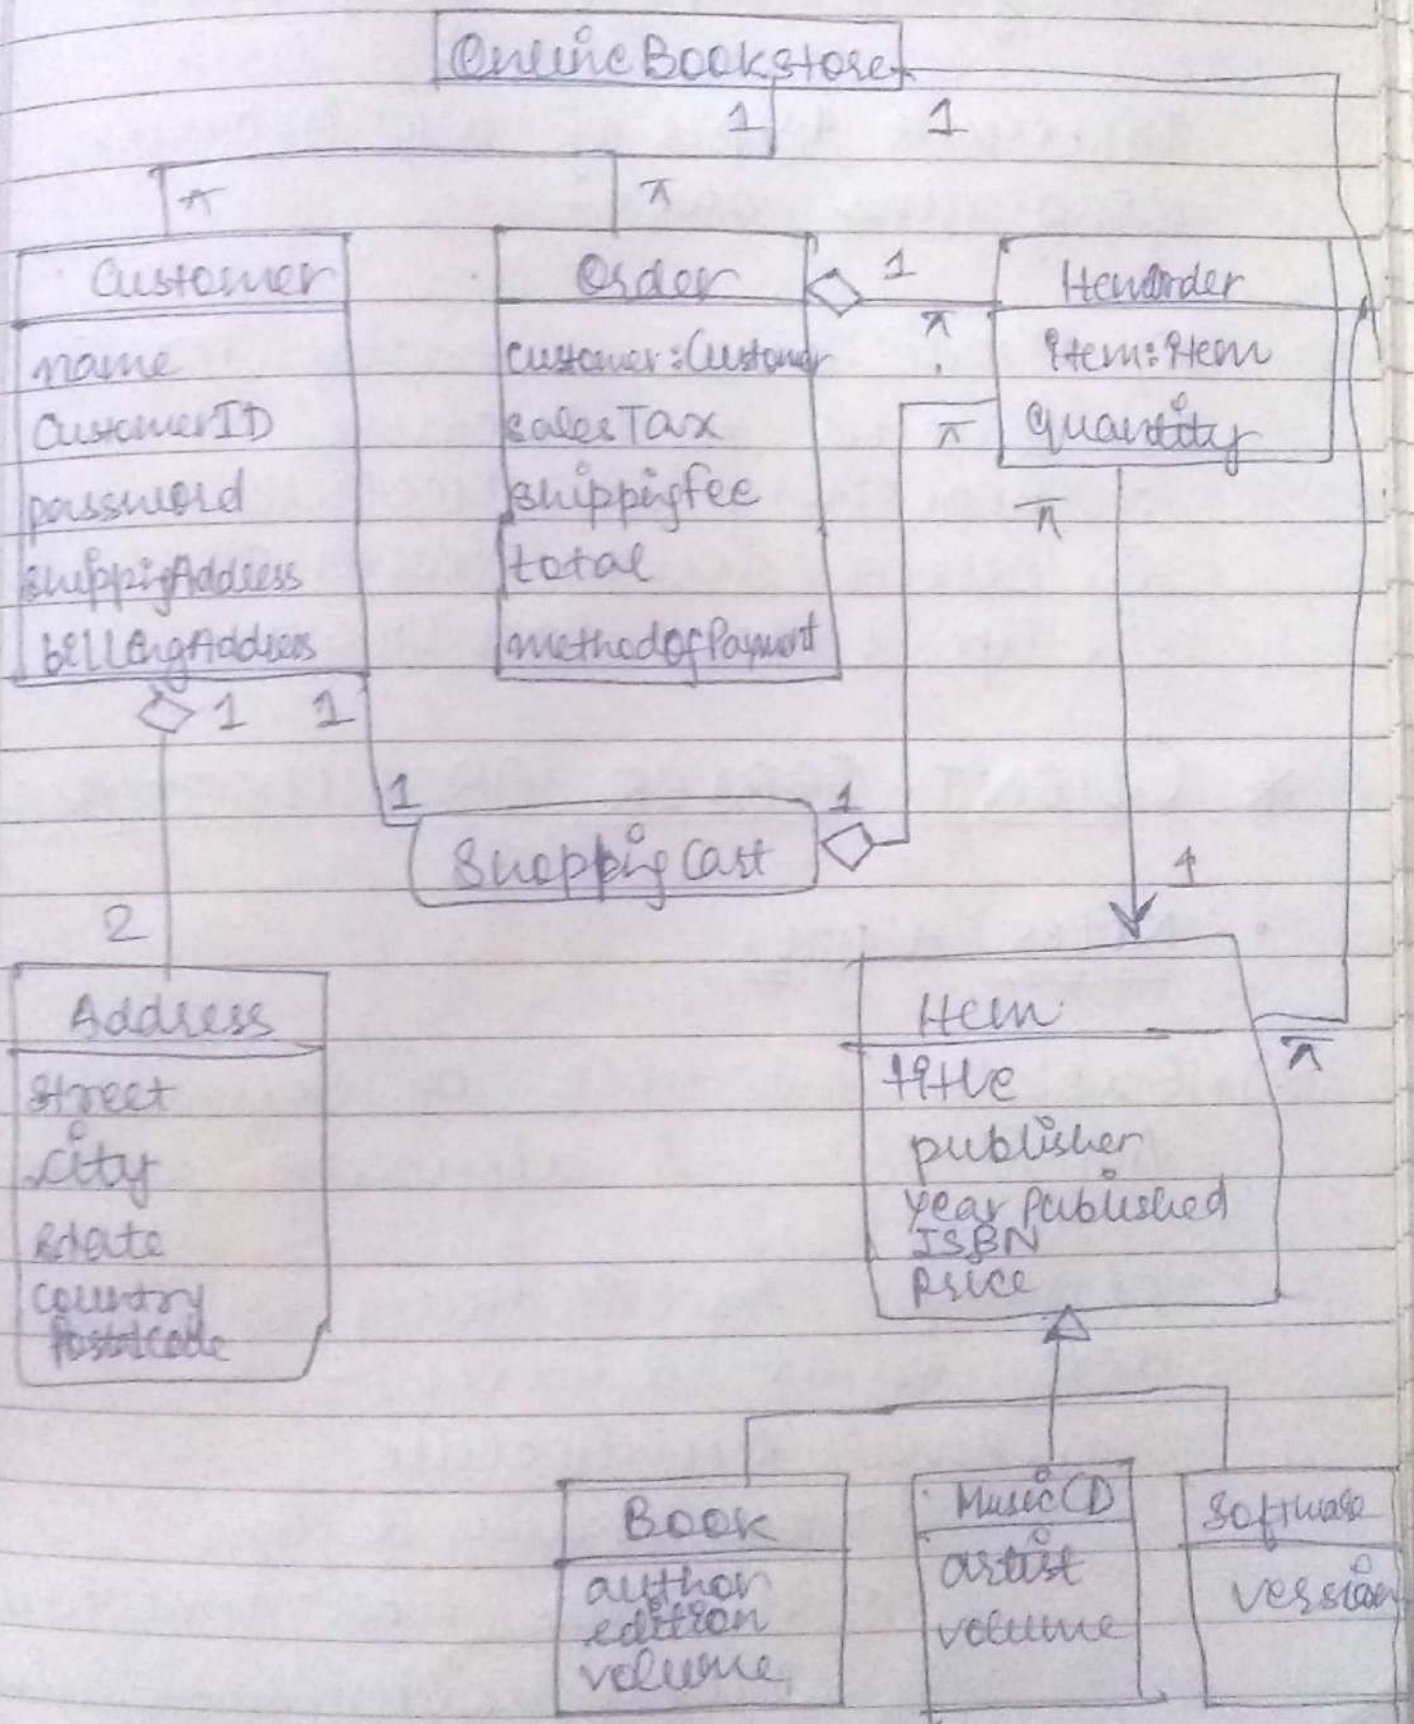 OnlineBookstore
1
1
*
*
Customer
name
CustomerID
password
shippingAddress
billingAddress
Order
customer:Customer
salesTax
shippingfee
total
methodofPayment
1
*
ItemOrder
item:Item
quantity
*
*
1
1
1
ShoppingCart
1
1
2
Address
street
city
state
country
PostalCode
Item
title
publisher
yearPublished
ISBN
price
*
Book
author
edition
volume
MusicCD
artist
volume
Software
version